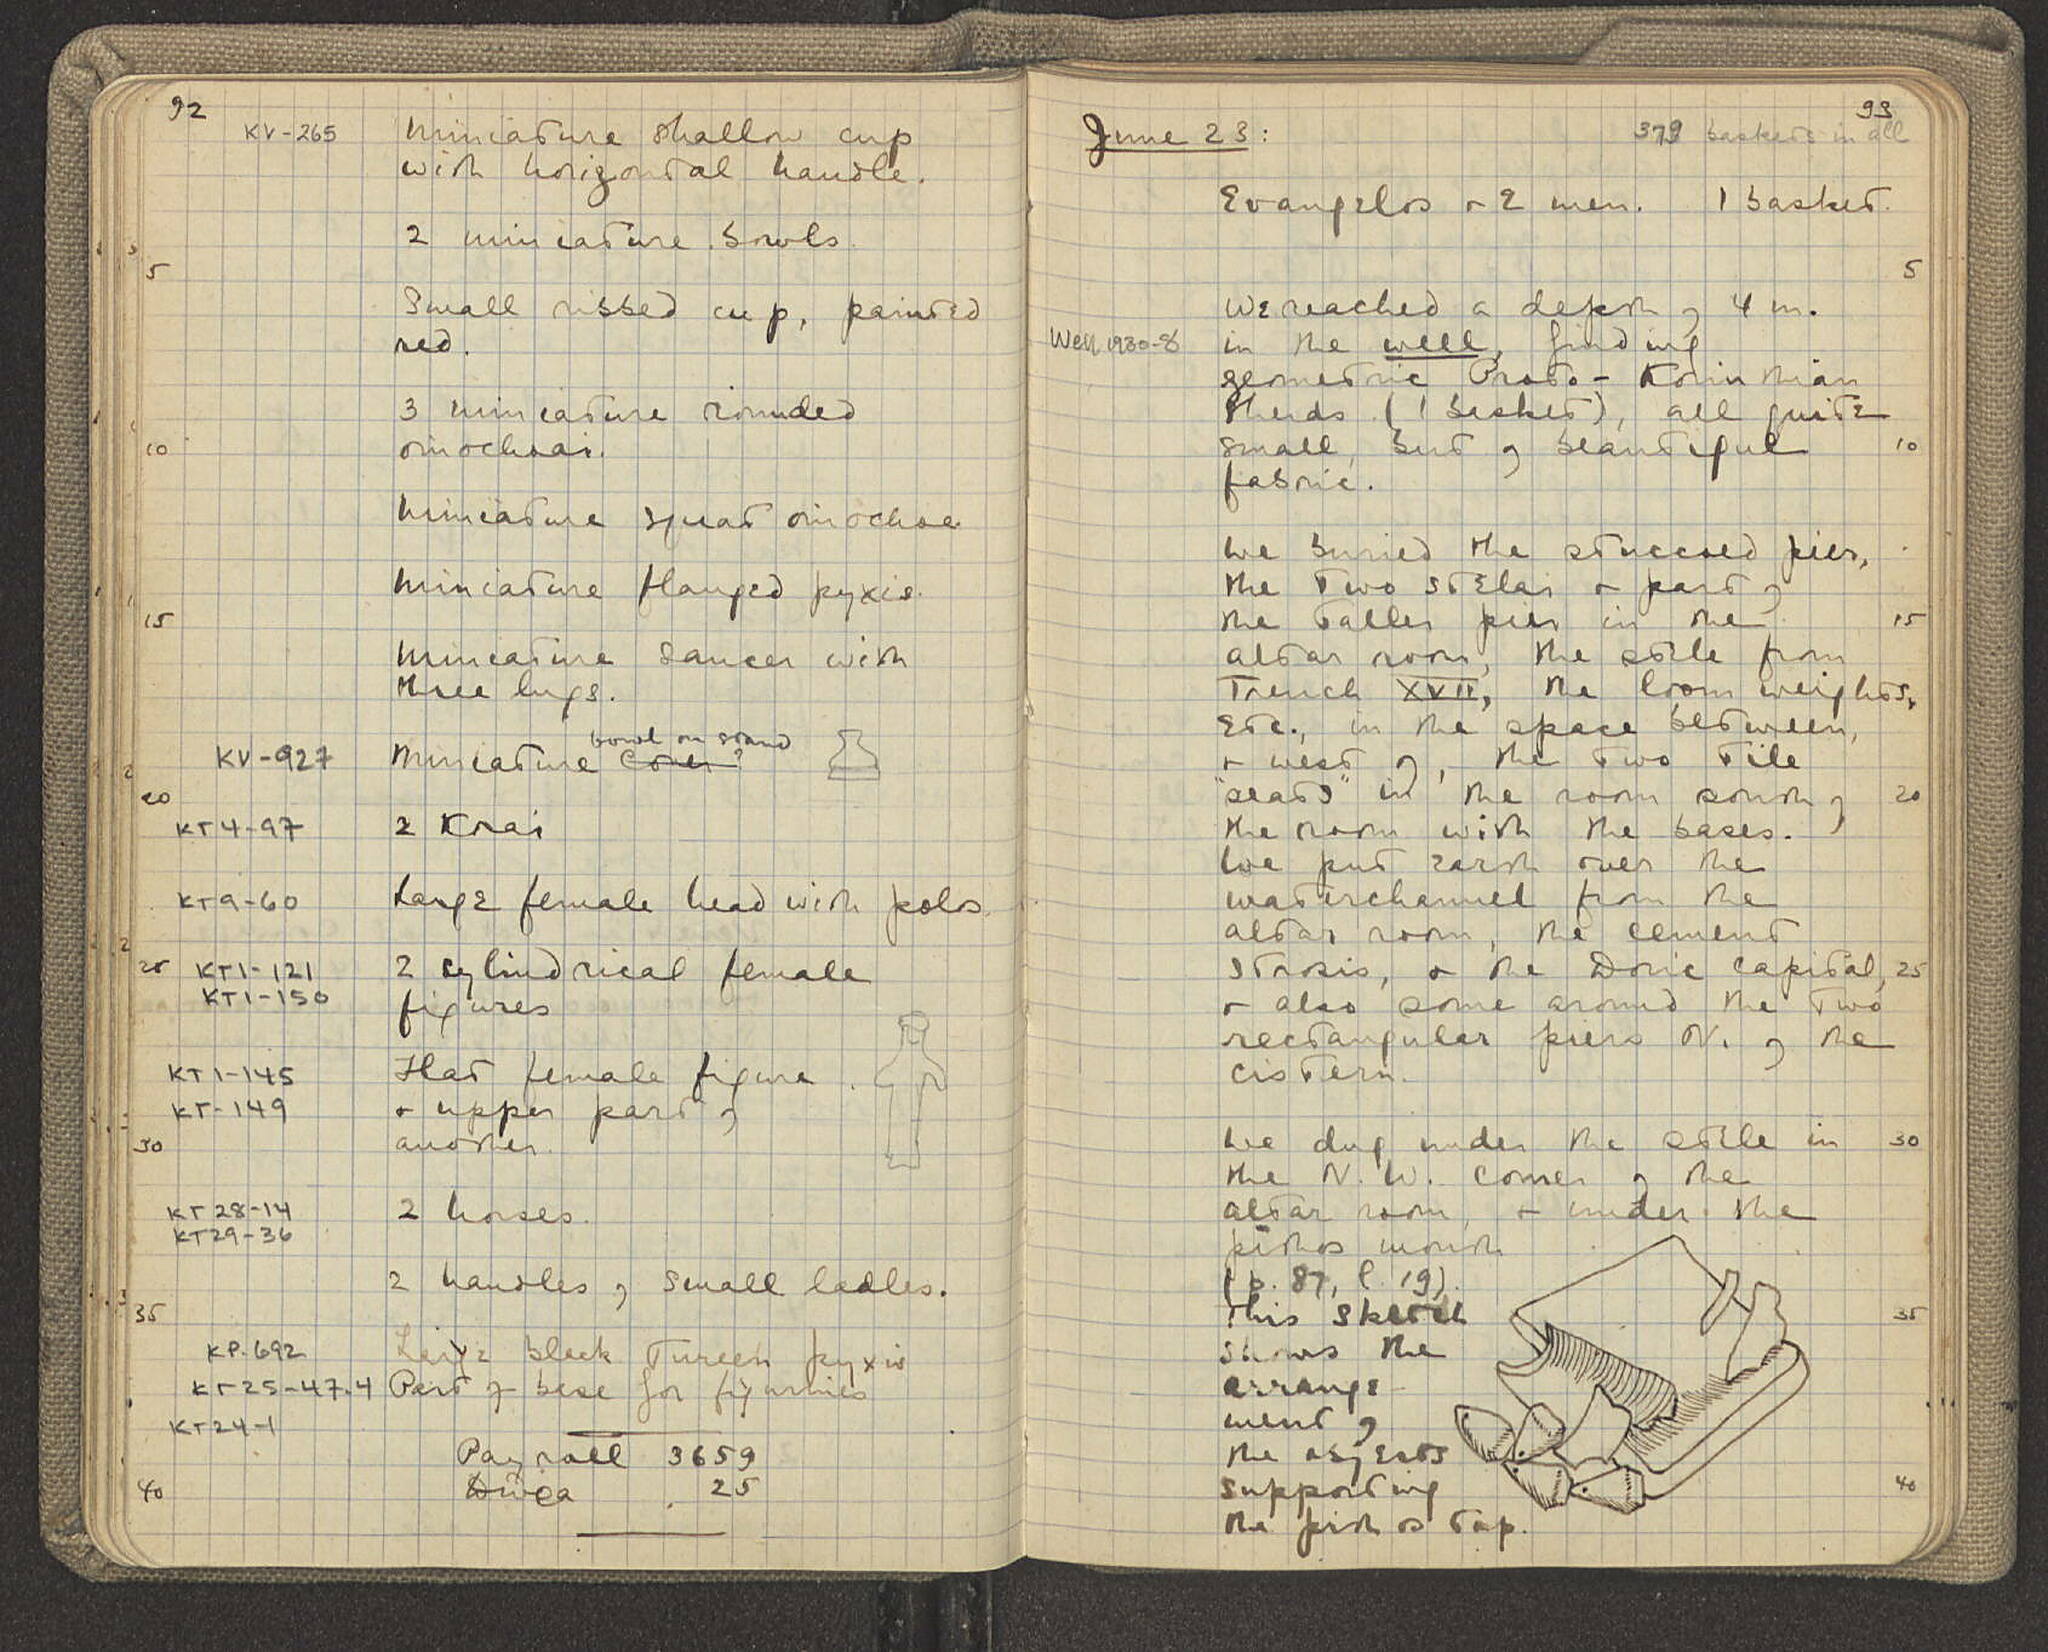 92
KV-265 Miniature shallow cup
with horizontal handle.
2 miniature bowls.
5
Small ribbed cup, painted
red.
3 miniature rounded
10 oinochoai.
Miniature squat oinochoe
Miniature flanged pyxis.
15
Miniature saucer with
three lugs.
bowl on stand
KV-927 Miniature Cover?
20
KT4-97 2 Korai
KT9-60 Large female head with polos.
25 KT1-121 2 cylindrical female
KT1-150 figures
KT1-145 Flat female figure
KT-149 + upper part of
30 another.
KT28-14 2 horses.
KT29-36
2 handles of small ladles.
35
KP-692 Large black Tureen pyxis
KT25-47.4 Part of base for figurines
KT24-1
Payroll 3659
40 25
93
June 23: 379 baskets in all
Evangelos + 2 men. 1 basket.
5
We reached a depth of 4 m.
Well 1930-8 in the well, finding
geometric Proto-Korinthian
sherds (1 basket), all quite
small, but of beautiful 10
fabric.
We buried the stuccoed pier,
the two stelai + part of
the taller pier in the 15
altar room, the stele from
Trench XVII, the loom weights,
etc., in the space between,
+ west of, the two tile
"seats" in the room south of 20
the room with the bases.
We put earth over the
waterchannel from the
altar room, the cement
strosis, + the Doric capital, 25
+ also some around the two
rectangular piers N. of the
cistern.
We dug under the stele in 30
the N.W. corner of the
altar room, + under the
pithos mouth
(p. 87, l. 19).
This sketch 35
shows the
arrange-
ment of
the objects
supporting 40
the pithos top.